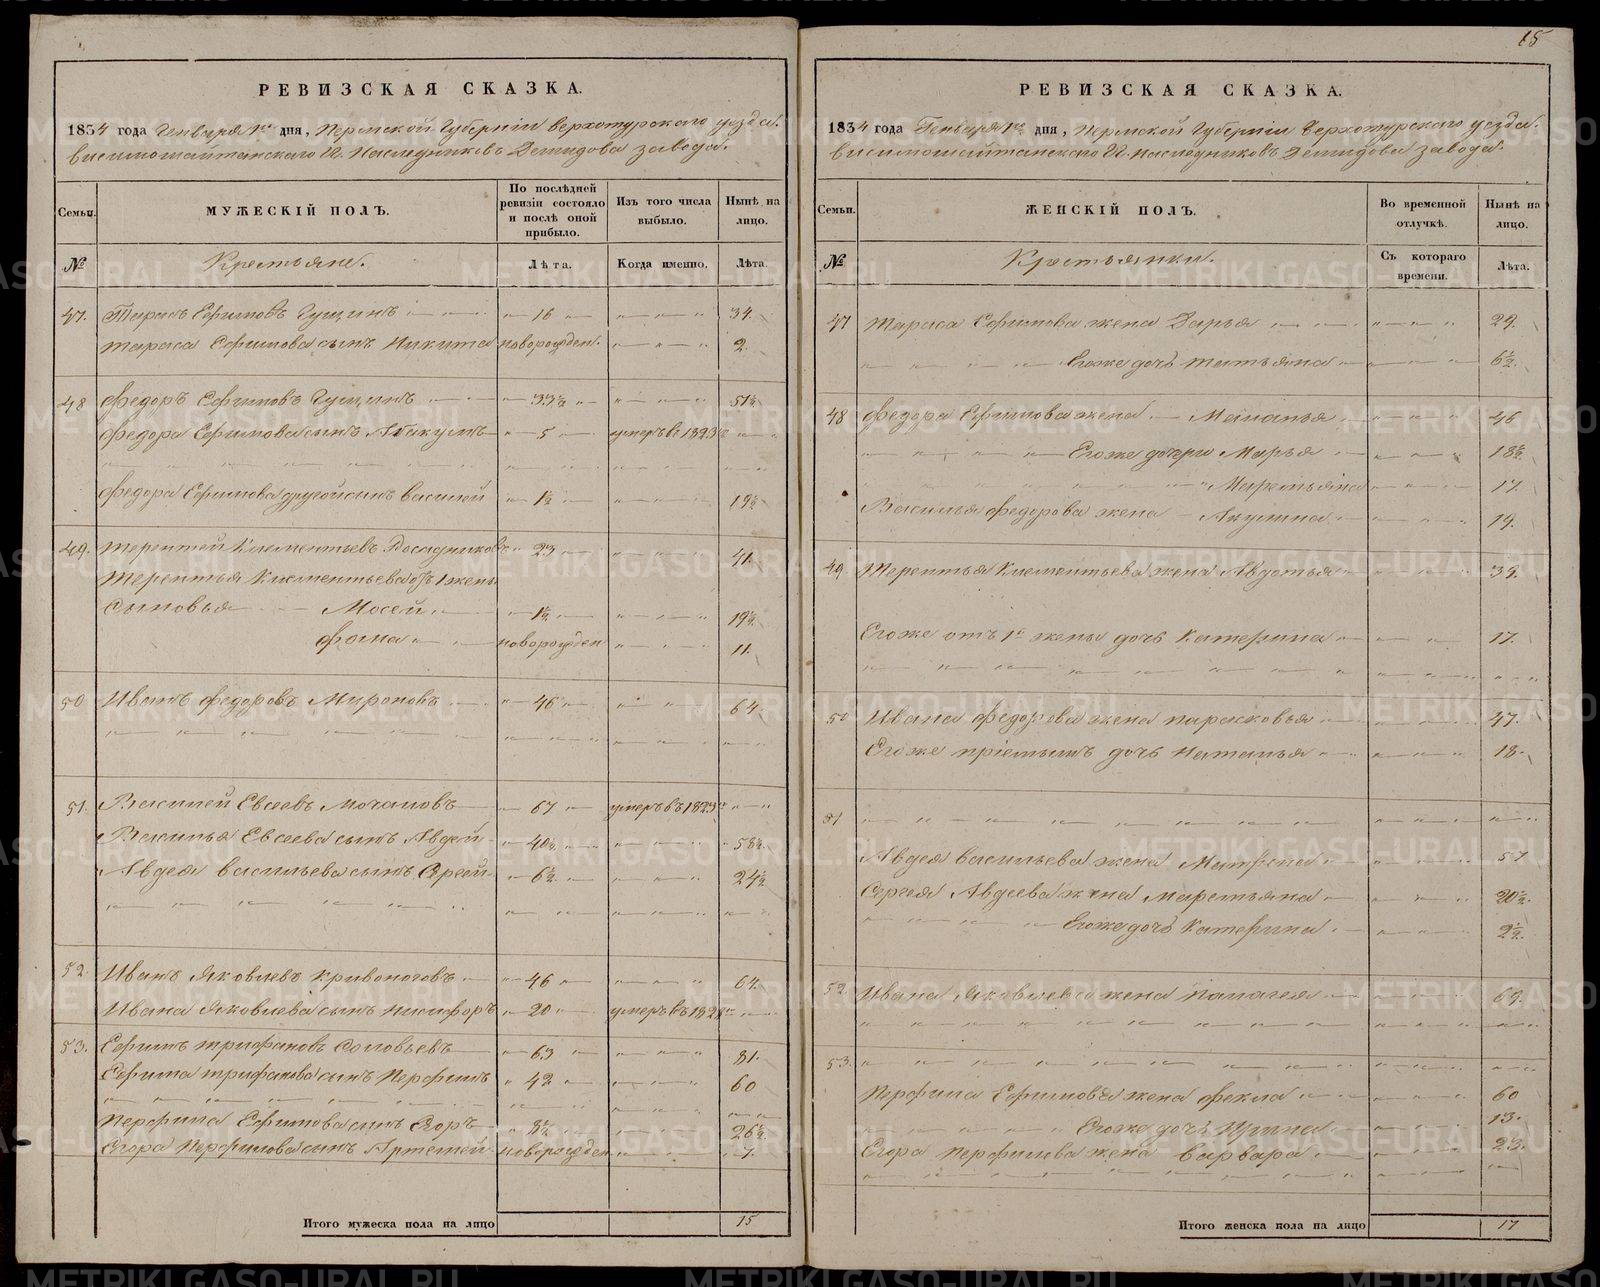 РЕВИЗСКАЯ СКАЗКА.
1834 года Генваря 1го дня, Пермской Губернии Верхотурского уезда.
висимошайтанского Н. Наследниковъ Демидова завода.
Семьи.
МУЖЕСКІЙ ПОЛЪ.
По послѣдней ревизіи состояло и послѣ оной прибыло.
Изъ того числа выбыло.
Нынѣ на лицо.
№
Крестьяне.
Лѣта.
Когда именно.
Лѣта.
47. Тарасъ Ефимовъ Гущинъ 16 34.
Тараса Ефимова сынъ Никита новорожден. 2
48 Федоръ Ефимовъ Гущинъ 33½ 51½
Федора Ефимова сынъ Абакумъ 5 умеръ въ 1823
Федора Ефимова другой сынъ Василей 1½ 19½
49. Терентей Клементьевъ 23 41.
Терентья Клементьева отъ 1 жены
Сыновья Мосей 1½ 19½
Фома новорожден 11.
50 Иванъ Федоровъ Мироновъ 46 64.
51. Василей Евсеевъ Мочаловъ 67 умеръ въ 1823
Василья Евсеева сынъ Авдей 40½ 58½
Авдея Васильева сынъ Сергей 6½ 24½
52. Иванъ Яковлевъ Кривоноговъ 46 64.
Ивана Яковлева сынъ Никифоръ 20 умеръ въ 182
53. Ефимъ Трифановъ Соловьевъ 63 81.
Ефима Трифанова сынъ Перфилъ 42 60
Перфила Ефимова сынъ Егоръ 8½ 26½
Егора Перфилова сынъ Артемей новорожден 7.
Итого мужеска пола на лицо 15
15
РЕВИЗСКАЯ СКАЗКА.
1834 года Генваря 1го дня, Пермской Губернии Верхотурского уезда.
висимошайтанского Н. Наследниковъ Демидова завода.
Семьи.
ЖЕНСКІЙ ПОЛЪ.
Во временной отлучкѣ.
Нынѣ на лицо.
№
Крестьянки.
Съ котораго времени.
Лѣта.
47 Тараса Ефимова жена Дарья 29.
Его же дочь Татьяна 6½
48 Федора Ефимова жена Маланья 46
Его же дочери Марья 18½
Маремьяна 17.
Василья Федорова жена Акулина 19.
49. Терентья Клементьева жена Авдотья 39.
Его же отъ 1й жены дочь Катерина 17.
50 Ивана Федорова жена Парасковья 47.
Его же пріемышъ дочь Наталья 18.
51
Авдея Васильева жена Матрена 57
Сергея Авдеева жена Маремьяна 20½.
Его же дочь Катерина 2½.
52 Ивана Яковлева жена Палагея 69.
53.
Перфила Ефимова жена Фекла 60
Его же дочь Ирина 13.
Егора Перфилова жена Варвара 23.
Итого женска пола на лицо 17
METRIKI.GASO-URAL.RU